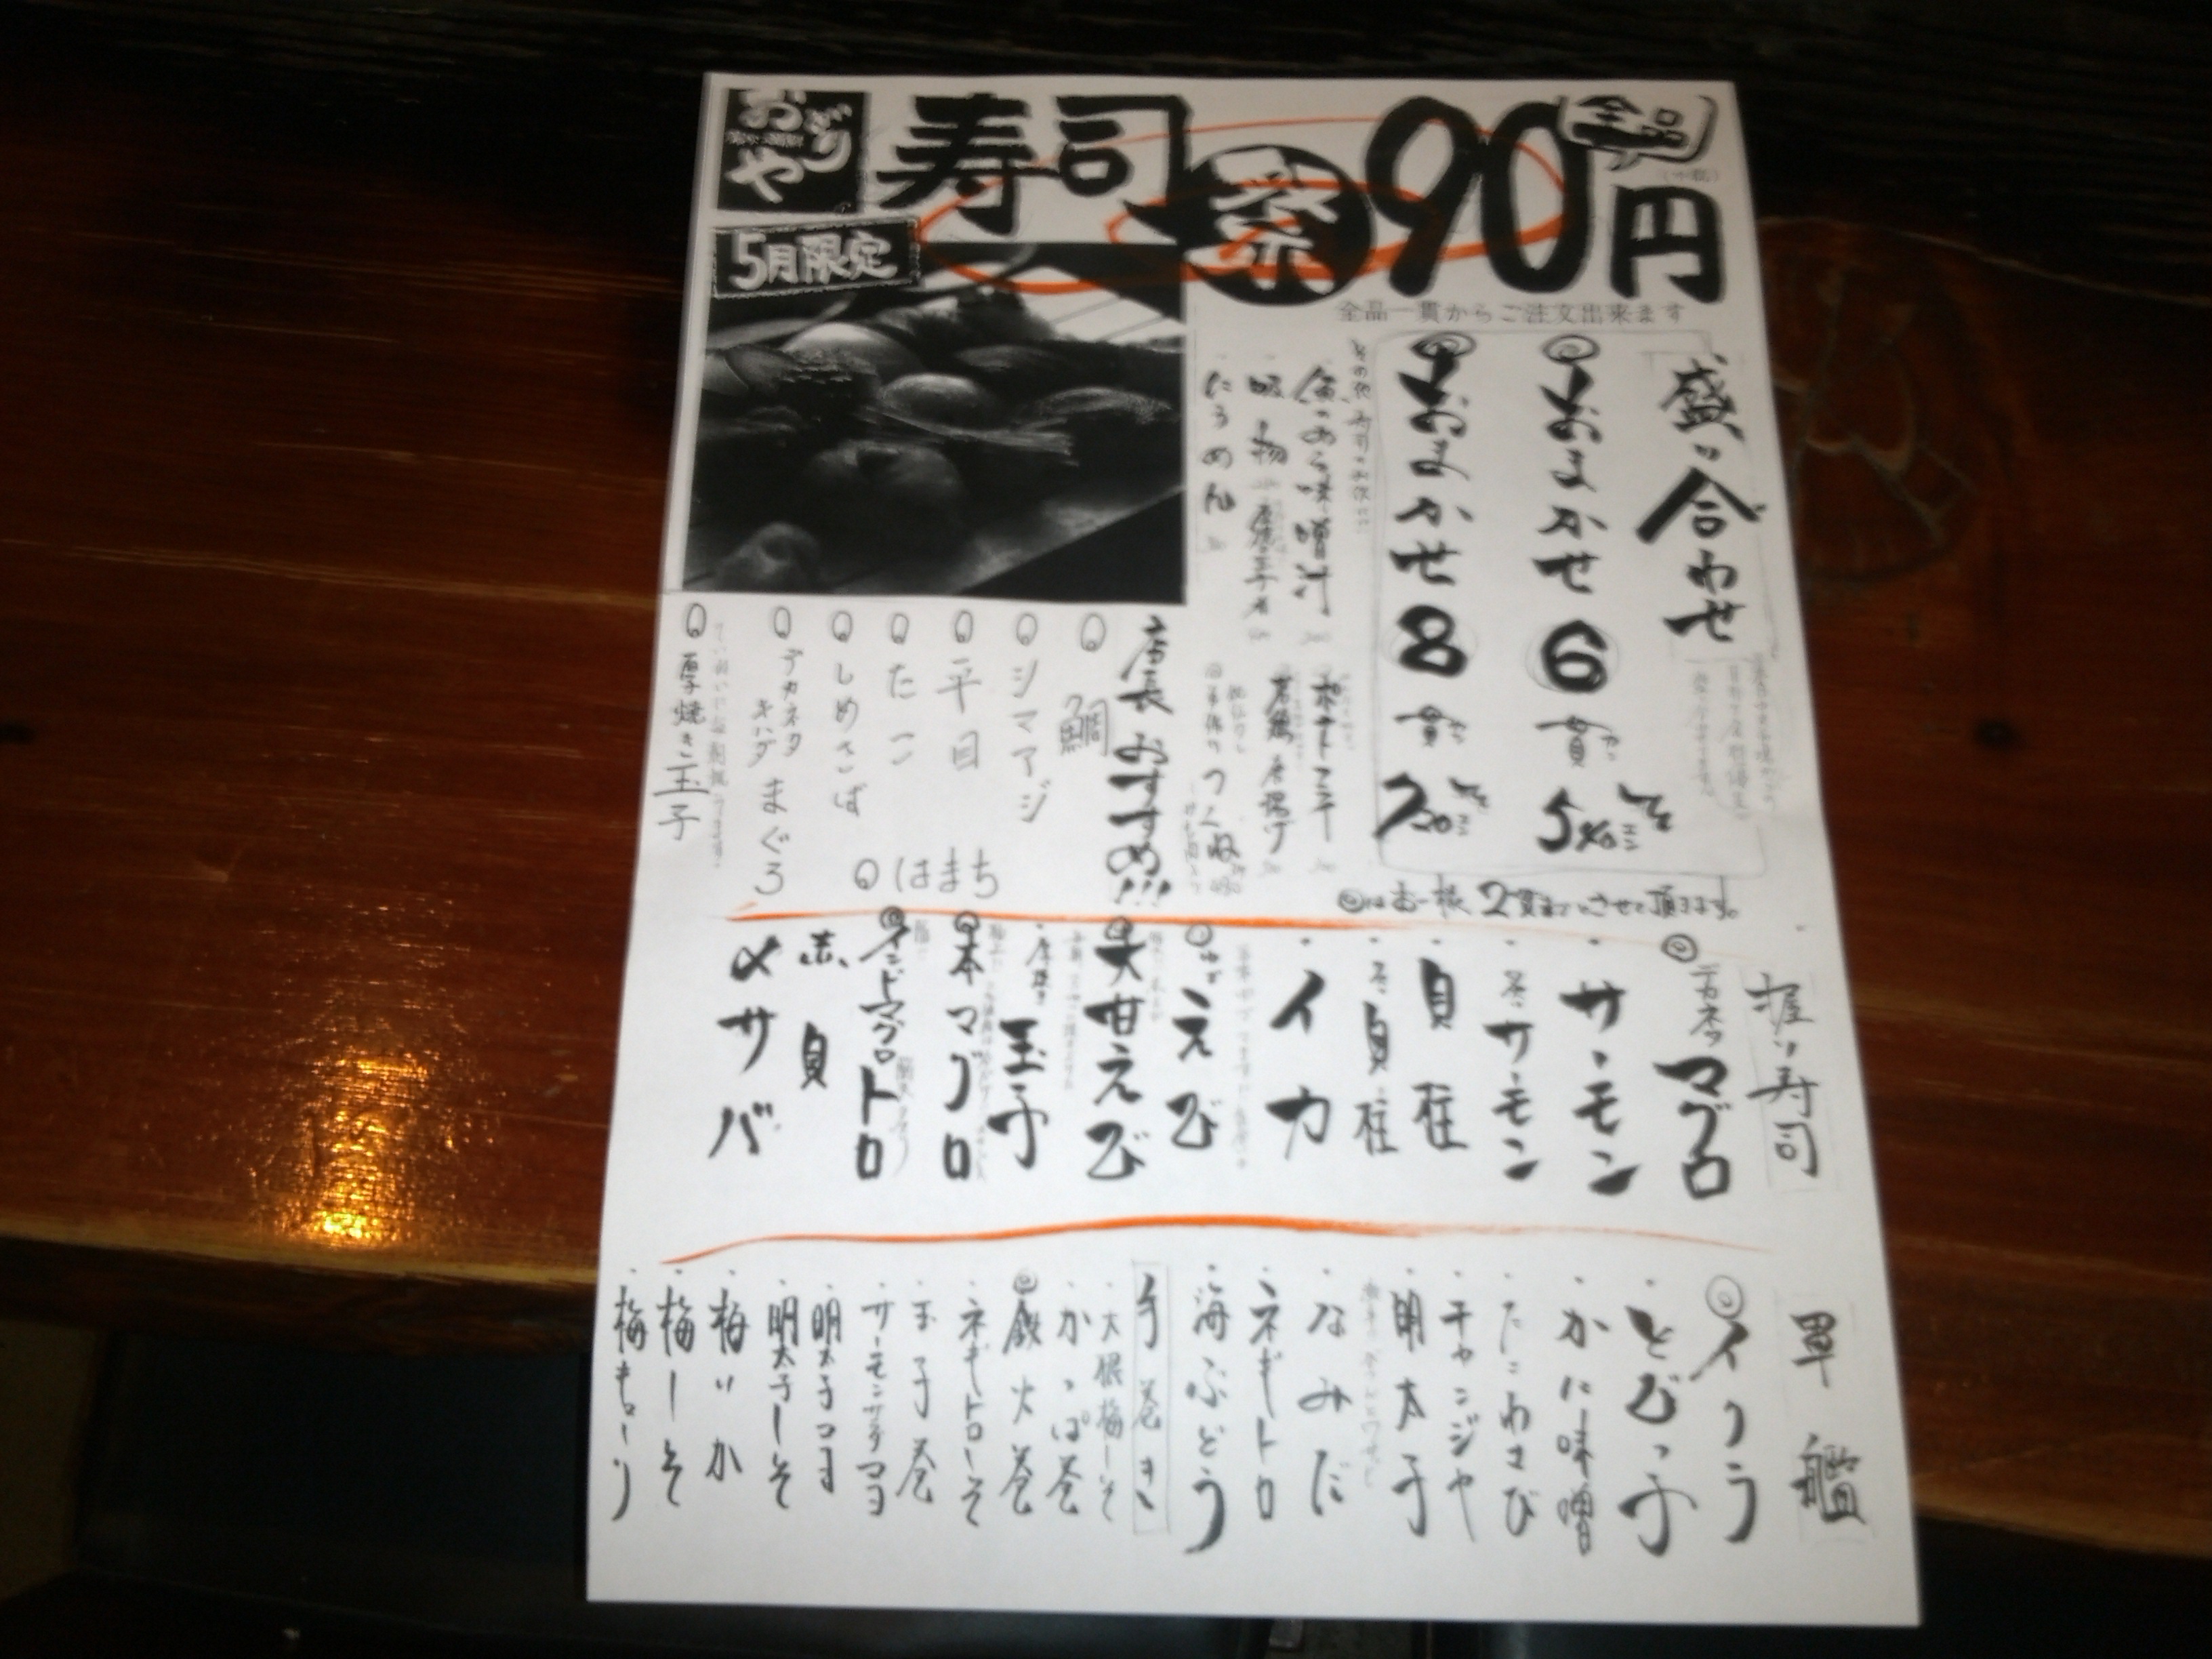 おどりや
寿司
祭
90円
全品
5月限定
全品一貫からご注文出来ます
盛り合わせ
おまかせ6貫
540エン
おまかせ8貫
720エン
魚のあら味噌汁
吸物
にうめん
ポテトフライ
若鶏唐揚げ
つくね
店長おすすめ!!!
鯛
シマアジ
平目
たこ
しめさば
デカネタ キハダ まぐろ
厚焼き玉子
はまち
はお一様2貫までとさせて頂きます。
握り寿司
デカネタ マグロ
サーモン
炙りサーモン
貝柱
炙り貝柱
イカ
えび
大甘えび
厚焼き玉子
本マグロ
インドマグロトロ
赤貝
〆サバ
軍艦
イクラ
とびっ子
かに味噌
たこわさび
チャンジャ
明太子
なみだ
ネギトロ
海ぶどう
手巻き
大根梅しそ
かっぱ巻
鉄火巻
ネギトロしそ
玉子巻
サーモンサラダマヨ
明太子マヨ
明太子しそ
梅いか
梅しそ
梅きゅうり